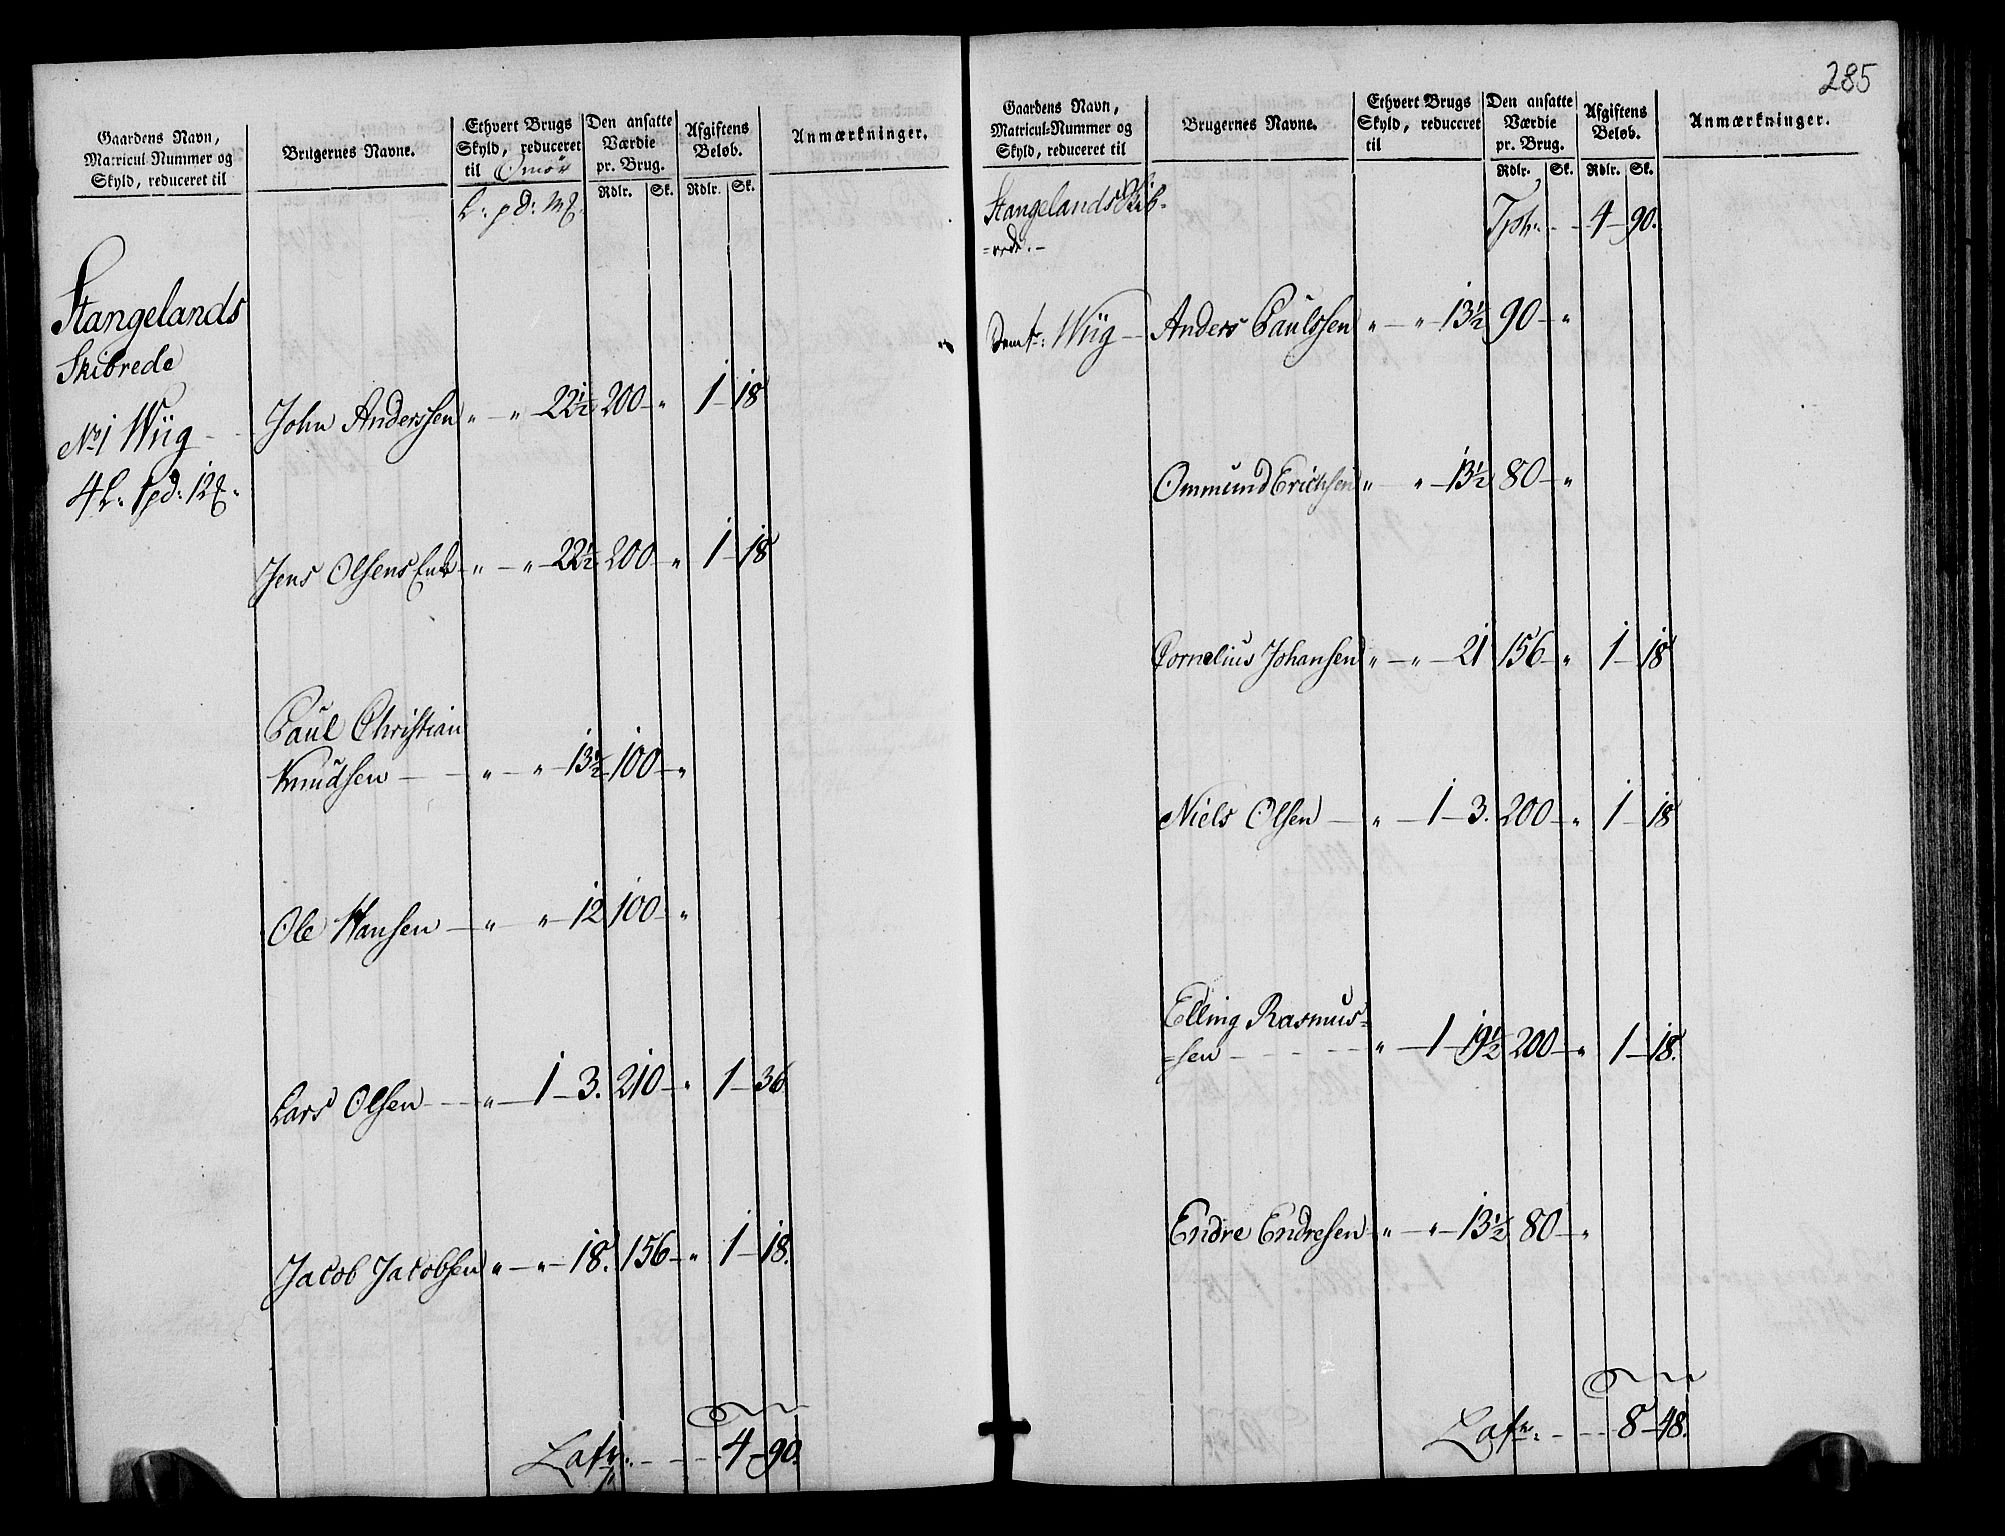 Gaardens Navn,
Matricul-Nummer og
Skyld, reduceret til
Brugernes Navne.
Ethvert Brugs
Skyld, reduceret
til Smør
L: pd: M
Den ansatte
Værdie
pr. Brug.
Rdlr. Sk.
Afgiftens
Beløb.
Rdlr. Sk.
Anmærkninger.
Stangelands
Skibrede
No 1 Wiig
4 L: 1 pd: 12
John Anderssen " — " — 22½ 200 — " 1 — 18
Jens Olsens Enke — " — " — 22½ 200 — " 1 — 18
Paul Christian
Knudsen — " — " — 13½ 100 — "
Ole Hansen — " " — 12 100 — "
Lars Olsen — " — 1 — 3. 210 — " 1 — 36
Jacob Jacobsen " — " — 18. 156 — " 1 — 18.
Lat: 4 — 90.
285
Gaardens Navn,
Matricul-Nummer og
Skyld, reduceret til
Brugernes Navne.
Ethvert Brugs
Skyld, reduceret
til
Den ansatte
Værdie
pr. Brug.
Rdlr. Sk.
Afgiftens
Beløb.
Rdlr. Sk.
Anmærkninger.
Stangelands Skib-
=rede. —
Tsp: 4 — 90.
Wiig — Anders Paulssen " — " — 13½ 90 — "
Ommund Erichsen " " — 13½ 80 — "
Cornelius Johansen " — " — 21 156 — " 1 — 18
Niels Olsen — " — 1 — 3. 200 — " 1 — 18
Elling Rasmus=
=sen — " — 1 — 19½ 200 — " 1 — 18.
Endre Endresen — " — " — 13½ 80 — "
Lat: 8 — 48.